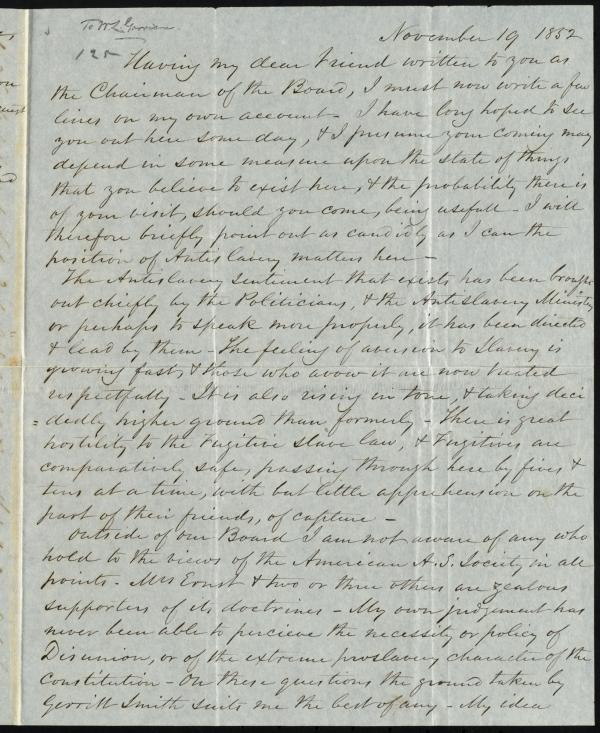 To W. L. Garrison.
November 19 1852
125 Having my dear Friend written to you as
the Chairman of the Board, I must now write a few
lines on my own account - I have long hoped to see
you out here some day, & I presume your coming may
depend in some measure upon the state of things
that you believe to exist here, & the probability there is
of your visit, should you come, being usefull - I will
therefore briefly point out as candidly as I can the
position of Antislavery matters here -
The Antislavery sentiment that exists has been brought
out chiefly by the Politicians, & the Antislavery Ministry
or perhaps to speak more properly, it has been directed
& lead by them - The feeling of aversion to Slavery is
growing fast, & those who avow it are now treated
respectfully - It is also rising in tone, & taking deci
=dedly higher ground than formerly - There is great
hostility to the Fugitive Slave law, & Fugitives are
comparatively safe, passing through here by fives &
tens at a time, with but little apprehension on the
part of their friends, of capture -
Outside of our Board I am not aware of any who
hold to the views of the American A. S. Society in all
points - Mrs Ernst & two or three others are zealous
supporters of its doctrines - My own judgement has
never been able to percieve the necessity or policy of
Disunion, or of the extreme proslavery character of the
Constitution - On these questions the ground taken by
Gerritt Smith suits me the best of any - My idea